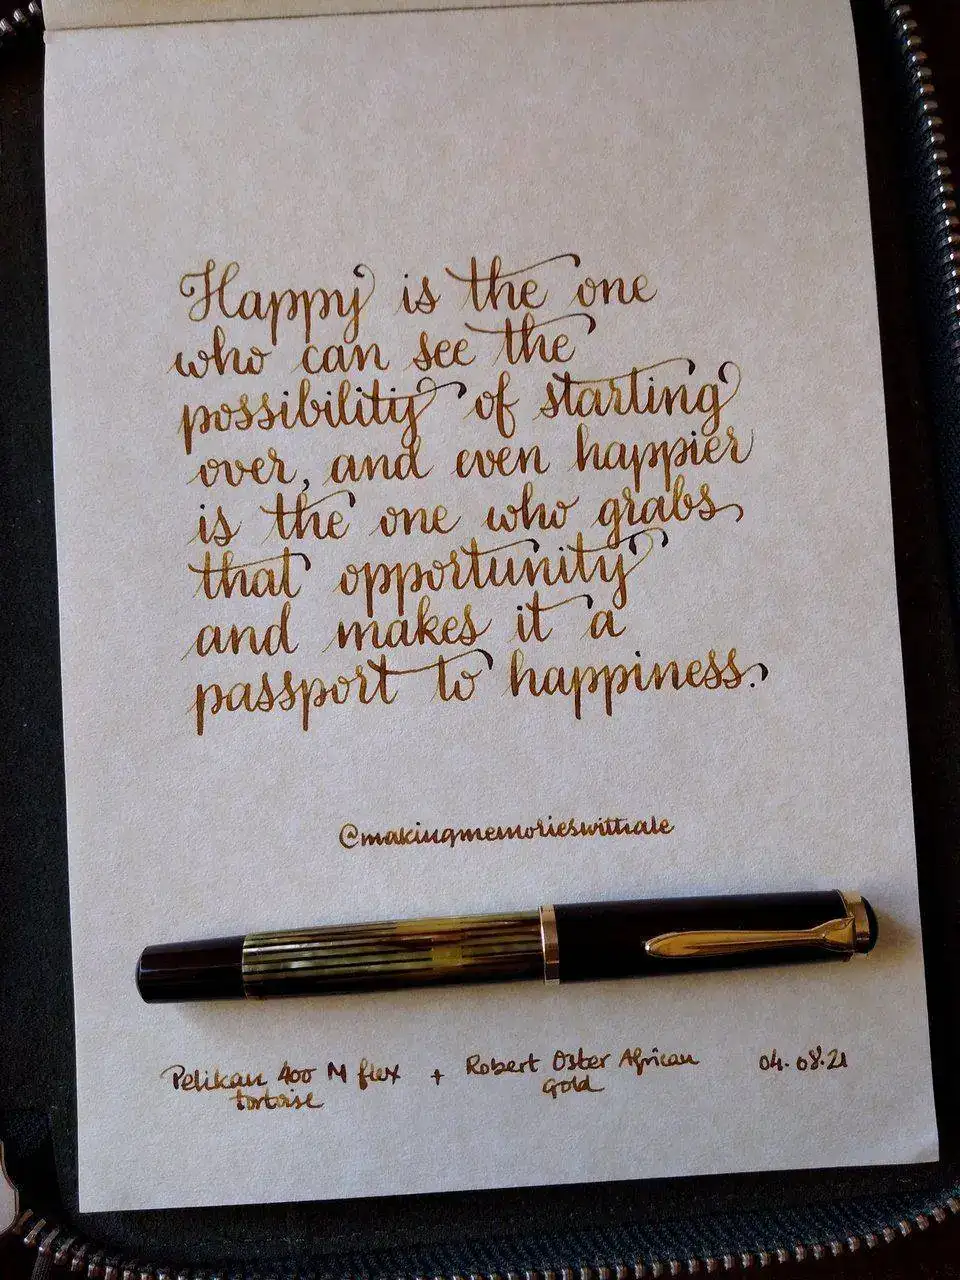 Happy is the one
who can see the
possibility of starting
over, and even happier
is the one who grabs
that opportunity
and makes it a
passport to happiness.
@makingmemorieswithale
Pelikan 400 M flex + Robert Oster African 04.08.21
tortoise Gold